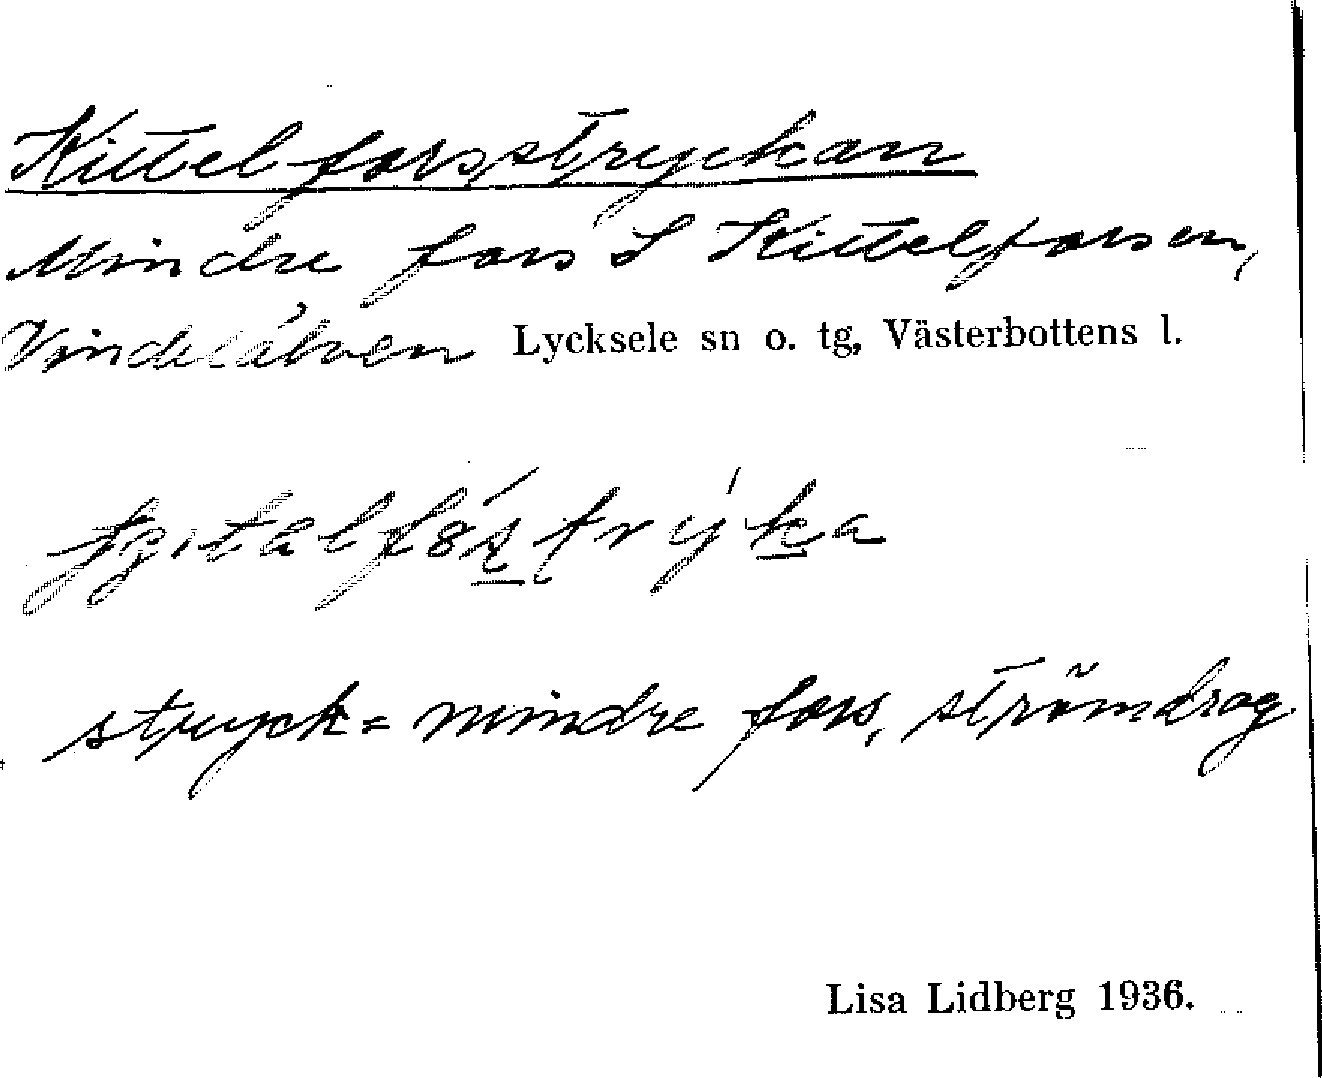 Kittelforsstryckan
Mindre fors i Kittelforsen,
Vindelälven Lycksele sn o. tg, Västerbottens l.
stryck = mindre fors, strömdrag
Lisa Lidberg 1936.